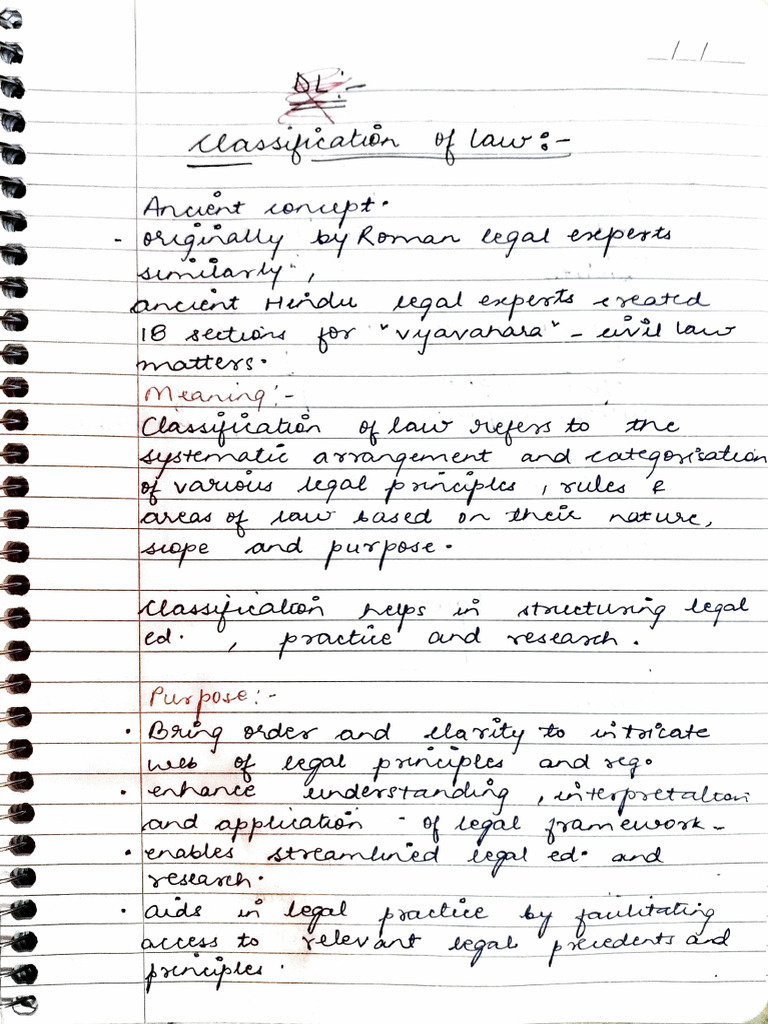 DL:-
Classification of law:-
Ancient concept.
- originally by Roman legal experts
similarly,
ancient Hindu legal experts created
18 sections for "vyavahara" - civil law
matters.
Meaning:-
Classification of law refers to the
systematic arrangement and categorisation
of various legal principles, rules &
areas of law based on their nature,
scope and purpose.
Classification helps in structuring legal
ed. , practice and research.
Purpose:-
• Bring order and clarity to intricate
web of legal principles and reg.
• enhance understanding, interpretation
and application - of legal framework-
• enables streamlined legal ed. and
research.
• aids in legal practice by facilitating
access to relevant legal precedents and
principles.